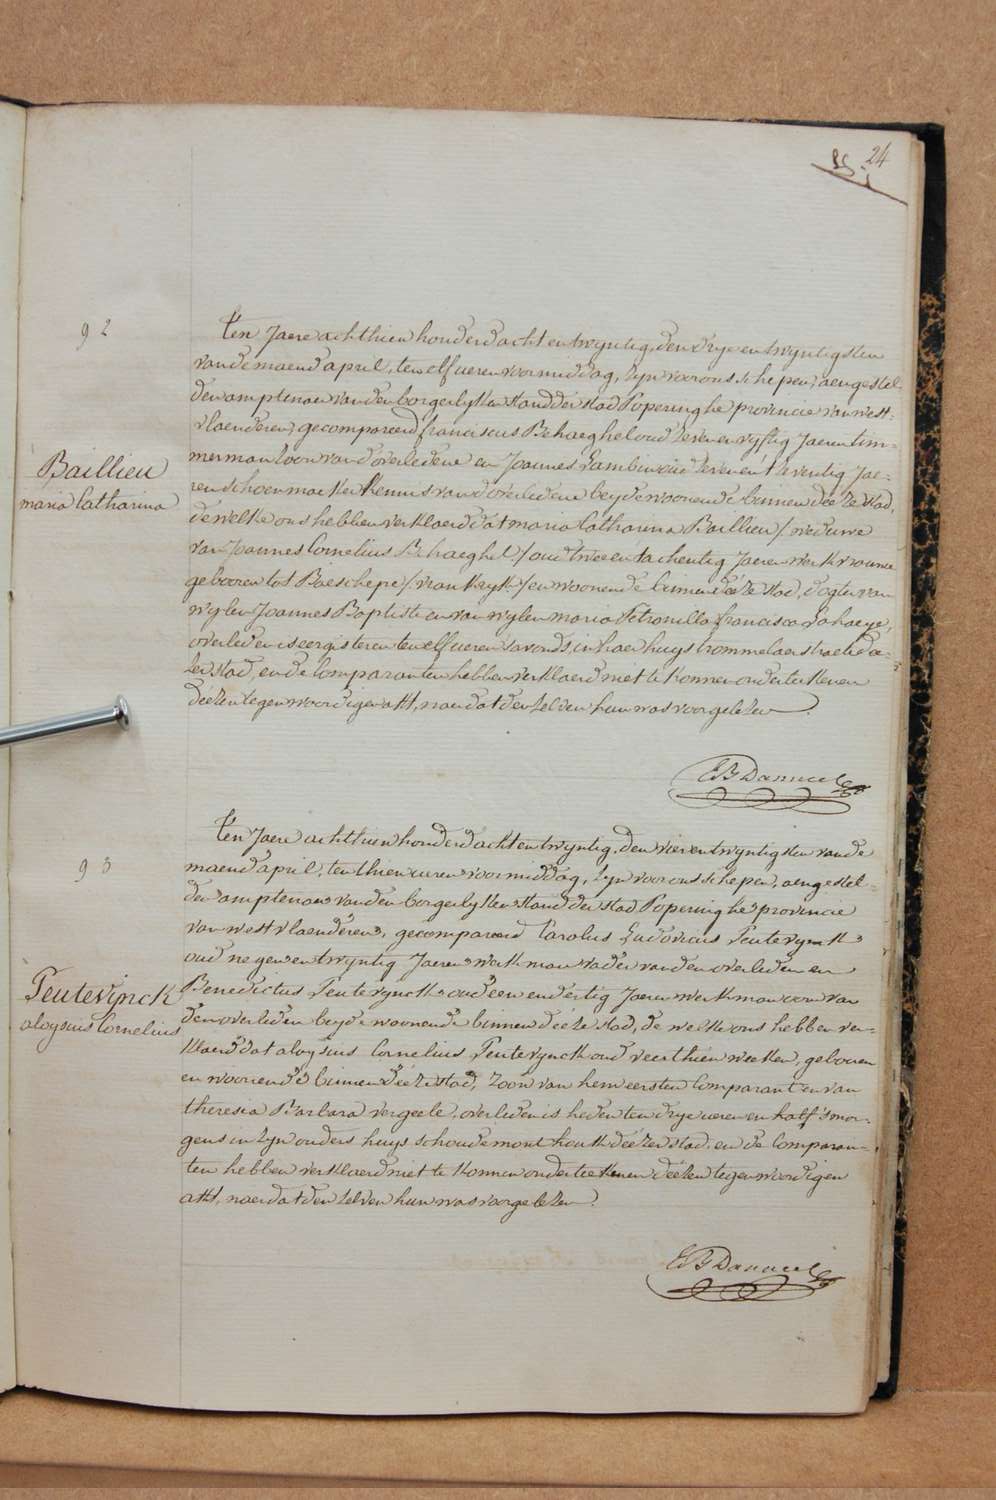 24
92
Baillieu
maria Catharina
Ten Jaere achthien honderd acht en twyntig, den drye en twyntigsten
van de maend april, ten elf ueren voormiddag, zyn voor ons schepen, aengestel
den amptenaer van den borgerlyken stand der stad Poperinghe provincie van west-
vlaenderen, gecompareerd franciscus Behaeghel oud zeven en vyftig Jaeren tim-
merman zoon van d'overledene en Joannes Lambin oud zeven en t'zeventig Jae-
ren schoenmaeker kennis van d'overledene beyde woonende binnen deéze stad,
de welke ons hebben verklaerd dat maria Catharina Baillieu / weduwe
van Joannes Cornelius Behaeghel / oud twee en tachentig Jaeren werkvrouwe
gebooren tot Boeschepe / vrankryk / en woonende binnen deéze stad, dogter van
wylen Joannes Baptiste en van wylen maria Petronilla francisca Lahaeye,
overleden is eergisteren ten elf ueren s'avonds, in haer huys trommelaers straete deé-
zer stad, en de Comparanten hebben verklaerd niet te konnen onderteekenen
deézen tegenwoordigen akt, naer dat den zelven hun was voorgelezen.
93
Peutevynck
aloysius Cornelius
Ten Jaere achthien honderd acht en twyntig, den vier en twyntigsten van de
maend april, ten thien ueren voormiddag, zyn voor ons schepen, aengestel-
den amptenaer van den borgerlyken stand der stad Poperinghe provincie
van westvlaenderen, gecompareerd Carolus Ludovicus Peutevynck
oud negen en twyntig Jaeren werkman vader van den overleden en
Benedictus Peutevynck oud een en dértig Jaeren werkman oom van
den overleden beyde woonende binnen deéze stad, de welke ons hebben ver-
klaerd dat aloysius Cornelius Peutevynck oud veerthien weeken, gebooren
en woonende binnen deéze stad, zoon van hem eersten Comparant en van
theresia Barbara vergeele, overleden is heden ten drye ueren en half s'mor-
gens in zyn ouders huys schoudemont houk deézer stad, en de Comparan-
ten hebben verklaerd niet te konnen onderteekenen deézen tegenwoordigen
akt, naer dat den zelven hun was voorgelezen.